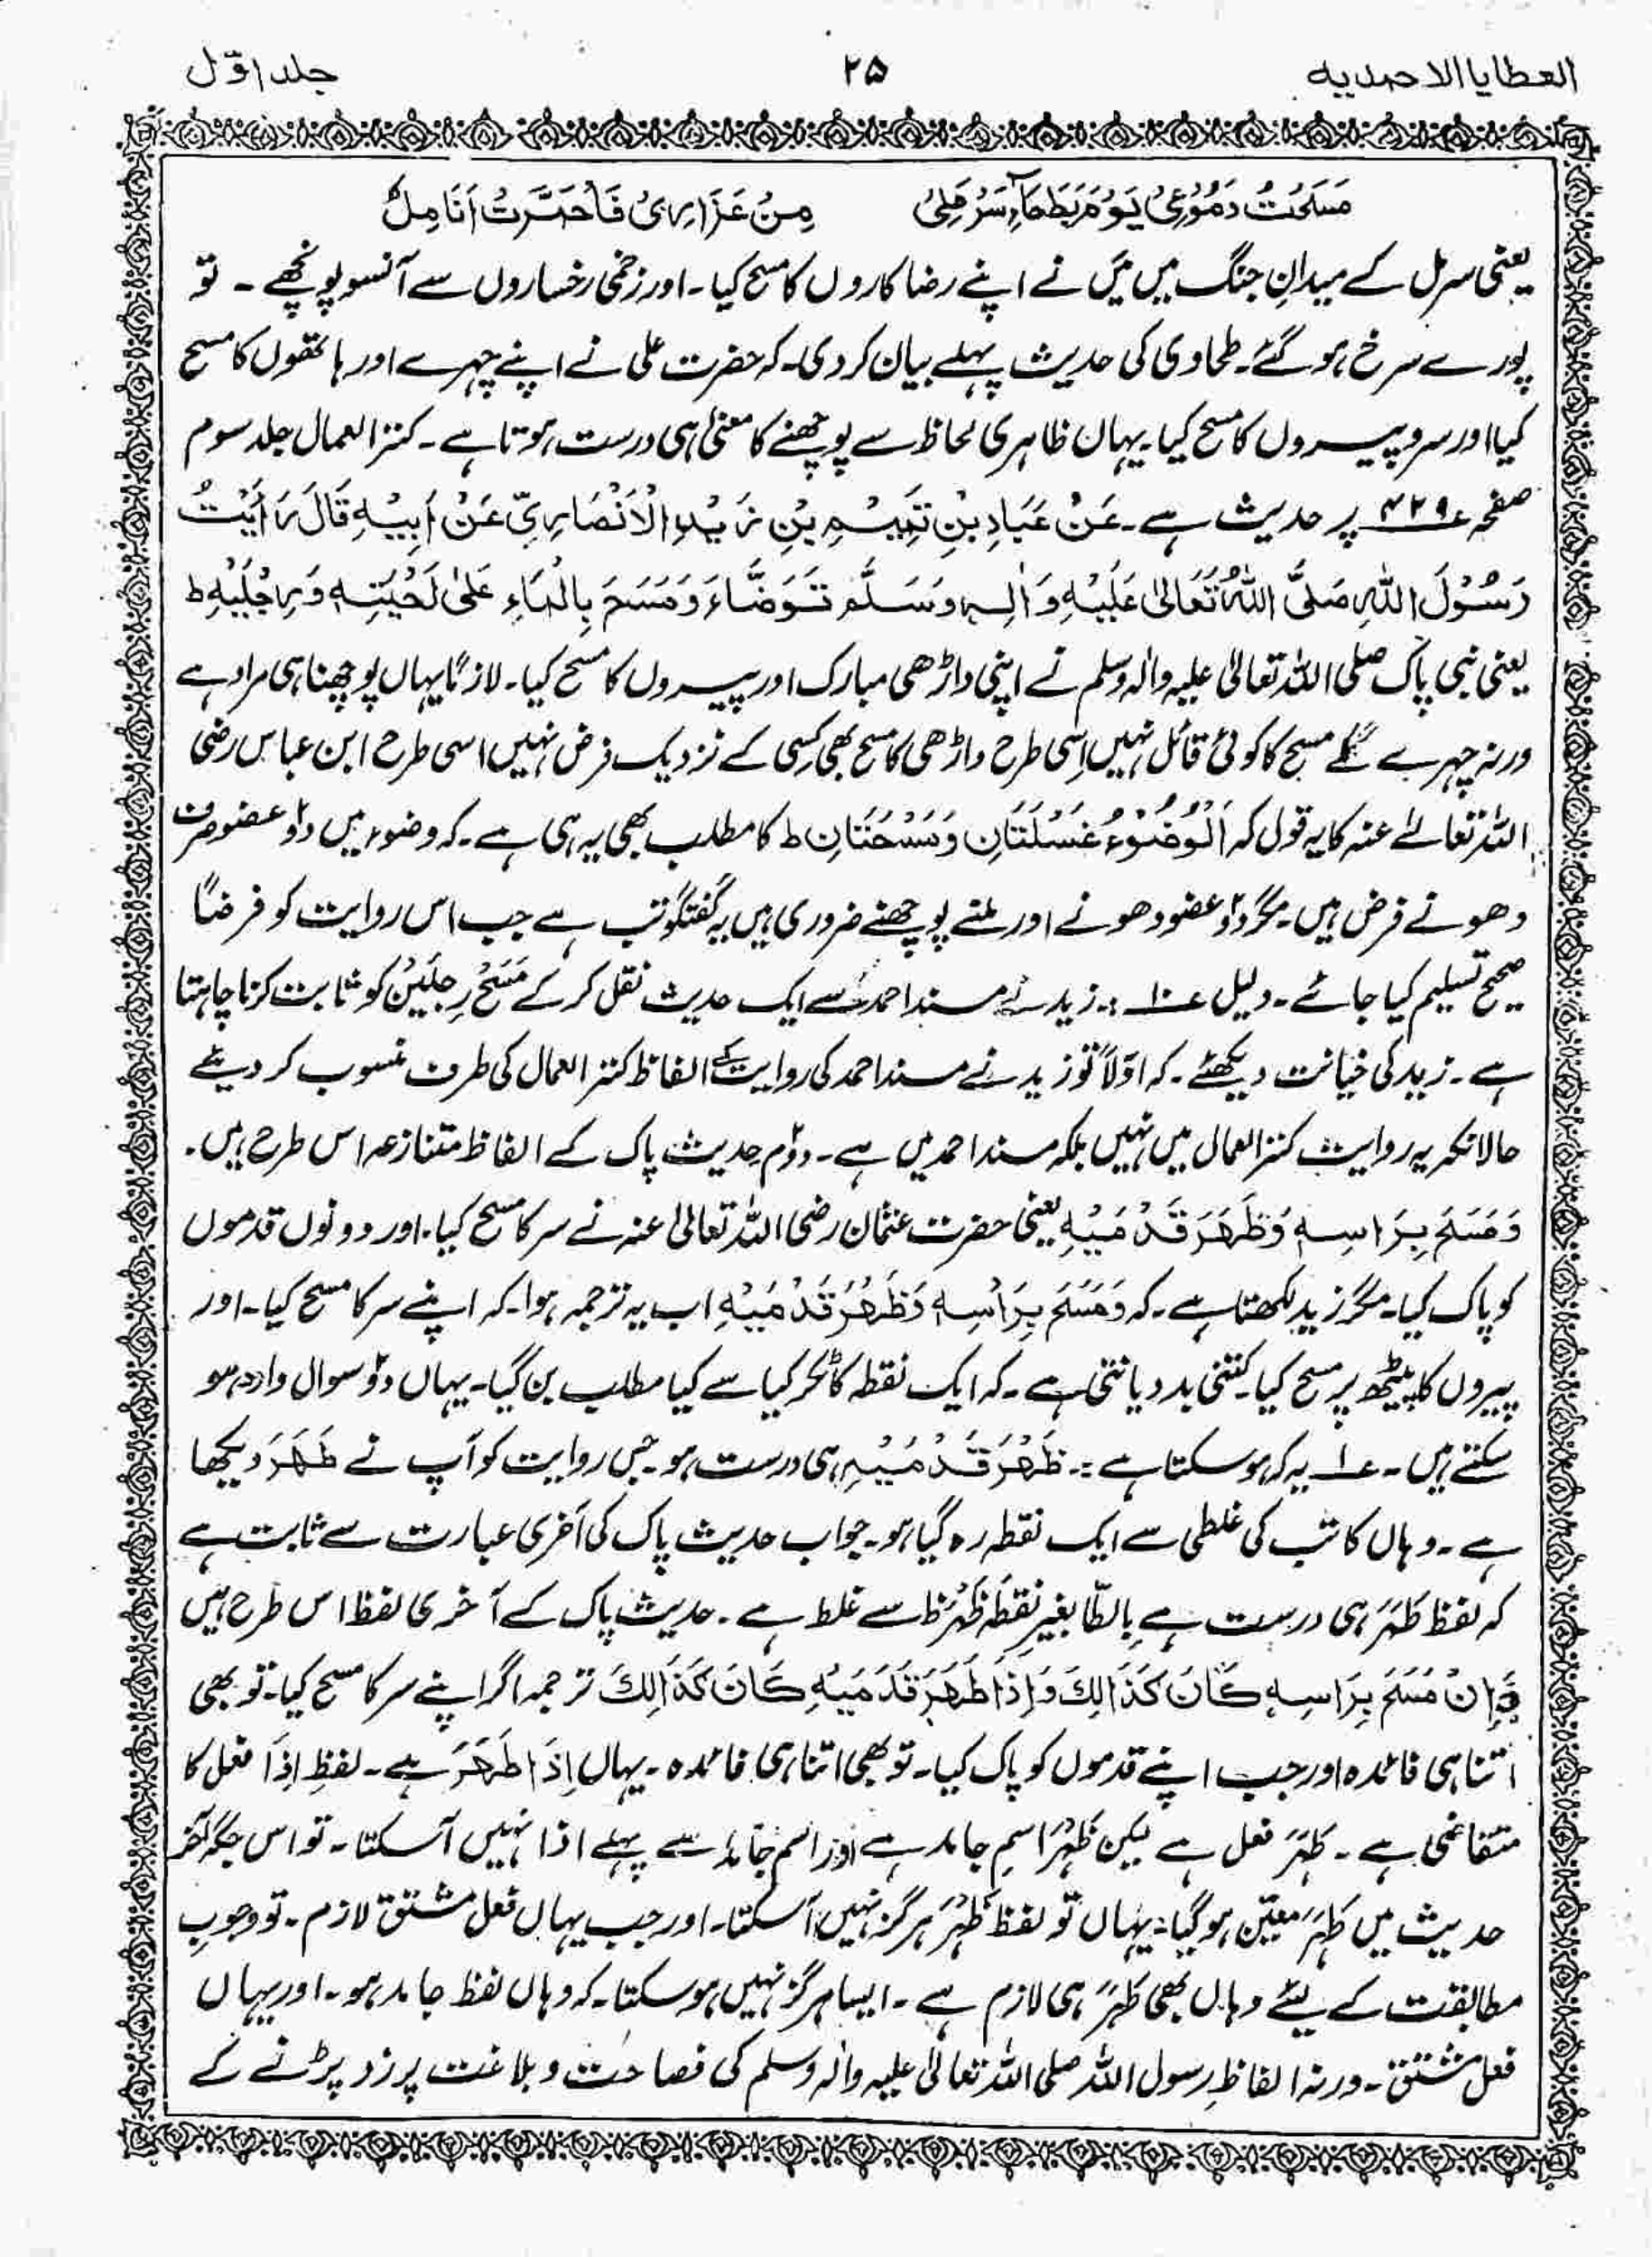 العطایا الاحمدیه ۲۵ جلد اوّل
مَسَحْتُ دَمُوْعِیْ یَوْمَ بَطْحَآءِ سَرْمَلِیْ مِنْ عَزَارِیْ فَاحْمَرَّتْ اَنَامِلُ
یعنی سرمل کے میدانِ جنگ میں میَں نے اپنے رضا کاروں کا مسح کیا۔ اور زخمی رخساروں سے آنسو پونچھے ۔ تو
پورے سرخ ہو گئے۔ طحاوی کی حدیث پہلے بیان کر دی۔ کہ حضرت علی نے اپنے چہرے اور ہاتھوں کا مسح
کیا اور سر و پیروں کا مسح کیا۔ یہاں ظاہری لحاظ سے پوچھنے کا معنیٰ ہی درست ہوتا ہے۔ کنز العمال جلد سوم
صفحہ ۴۲۹ پر حدیث ہے۔ عَنْ عَبَادِ بْنِ تَمِیْمِ بْنِ زَیْدِ الْاَنْصَارِیِّ عَنْ اَبِیْهِ قَالَ رَاَیْتُ
رَسُوْلَ اللّٰهِ صَلَّی اللّٰهُ تَعَالٰی عَلَیْهِ وَاٰلِهٖ وَسَلَّمَ تَوَضَّاءَ وَمَسَحَ بِالْمَاءِ عَلٰی لَحْیَتِهٖ وَرِجْلَیْهِ ط
یعنی نبی پاک صلی اللہ تعالیٰ علیہ واٰلہ وسلم نے اپنی داڑھی مبارک اور پیروں کا مسح کیا۔ لازمًا یہاں پوچھنا ہی مراد ہے
ورنہ چہرے کے مسح کا کوئی قائل نہیں اِسی طرح داڑھی کا مسح بھی کِسی کے نزدیک فرض نہیں اسی طرح ابن عباس رضی
اللہ تعالےٰ عنہ کا یہ قول کہ اَلْوُضُوْءُ غَسْلَتَانِ وَمَسْحَتَانِ ط کا مطلب بھی یہ ہی ہے۔ کہ وضوء میں دو عضو صرف
دھونے فرض ہیں۔ مگر دو عضو دھونے اور ملنے پوچھنے ضروری ہیں یہ گفتگو تب ہے جب اس روایت کو فرضًا
صحیح تسلیم کیا جائے۔ دلیل ۱۰ :۔ زید نے مسند احمد سے ایک حدیث نقل کر کے مَسَحُ رِجلَیْن کو ثابت کرنا چاہتا
ہے۔ زید کی خیانت دیکھئے۔ کہ اوّلًا تو زید نے مسند احمد کی روایت کے الفاظ کنز العمال کی طرف منسوب کر دیئے
حالانکہ یہ روایت کنز العمال میں نہیں بلکہ مسند احمد میں ہے۔ دوئم حدیث پاک کے الفاظ متنازعہ اس طرح ہیں۔
وَمَسَحَ بِرَاسِهٖ وَطَهَرَ قَدْمَیْهِ یعنی حضرت عثمان رضی اللہ تعالیٰ عنہ نے سر کا مسح کیا۔ اور دونوں قدموں
کو پاک کیا۔ مگر زید لکھتا ہے۔ کہ وَمَسَحَ بِرَاْسِهٖ وَظَهُرَ قَدْمَیْهِ اب یہ ترجمہ ہوا۔ کہ اپنے سر کا مسح کیا۔ اور
پیروں کا پیٹھ پر مسح کیا۔ کتنی بد دیانتی ہے۔ کہ ایک نقطہ کاٹکر کیا سے کیا مطلب بن گیا۔ یہاں دو سوال وارد ہو
سکتے ہیں۔ ۱ یہ کہ ہو سکتا ہے :۔ ظَهُرَ قَدْمَیْهِ ہی درست ہو۔ جس روایت کو آپ نے طَهَرَ دیکھا
ہے۔ وہاں کاتب کی غلطی سے ایک نقطہ رہ گیا ہو۔ جواب حدیث پاک کی آخری عبارت سے ثابت ہے
کہ لفظ طَہَرَ ہی درست ہے بِالطّا بغیر نقطہ ظَہْر ظ سے غلط ہے۔ حدیث پاک کے آخری لفظ اس طرح ہیں
وَاِنْ مَسَحَ بِرَاسِهٖ کَانَ کَذَالِكَ وَاِذَا طَهَرَ قَدَمَیْهِ کَانَ کَذَالِكَ ترجمہ اگر اپنے سر کا مسح کیا۔ تو بھی
اتنا ہی فائدہ اور جب اپنے قدموں کو پاک کیا۔ تو بھی اتنا ہی فائدہ۔ یہاں اِذَا طَهَرَ ہے۔ لفظِ اِذَا فعل کا
متقاضی ہے۔ طَہَرَ فعل ہے لیکن ظَہْرَ اسم جامد ہے اور اسم جامد سے پہلے اذا نہیں آسکتا۔ تو اس جگہ آخر
حدیث میں طَہَرَ معیّن ہو گیا۔ یہاں تو لفظ ظَہْرَ ہرگز نہیں آسکتا۔ اور جب یہاں فعل مشتق لازم۔ تو وجوبِ
مطابقت کے لئے وہاں بھی طَہَرَ ہی لازم ہے۔ ایسا ہرگز نہیں ہو سکتا۔ کہ وہاں لفظ جامد ہو۔ اور یہاں
فعل مشتق۔ ورنہ الفاظِ رسول اللہ صلی اللہ تعالیٰ علیہ واٰلہ وسلم کی فصاحت و بلاغت پر زد پڑنے کے